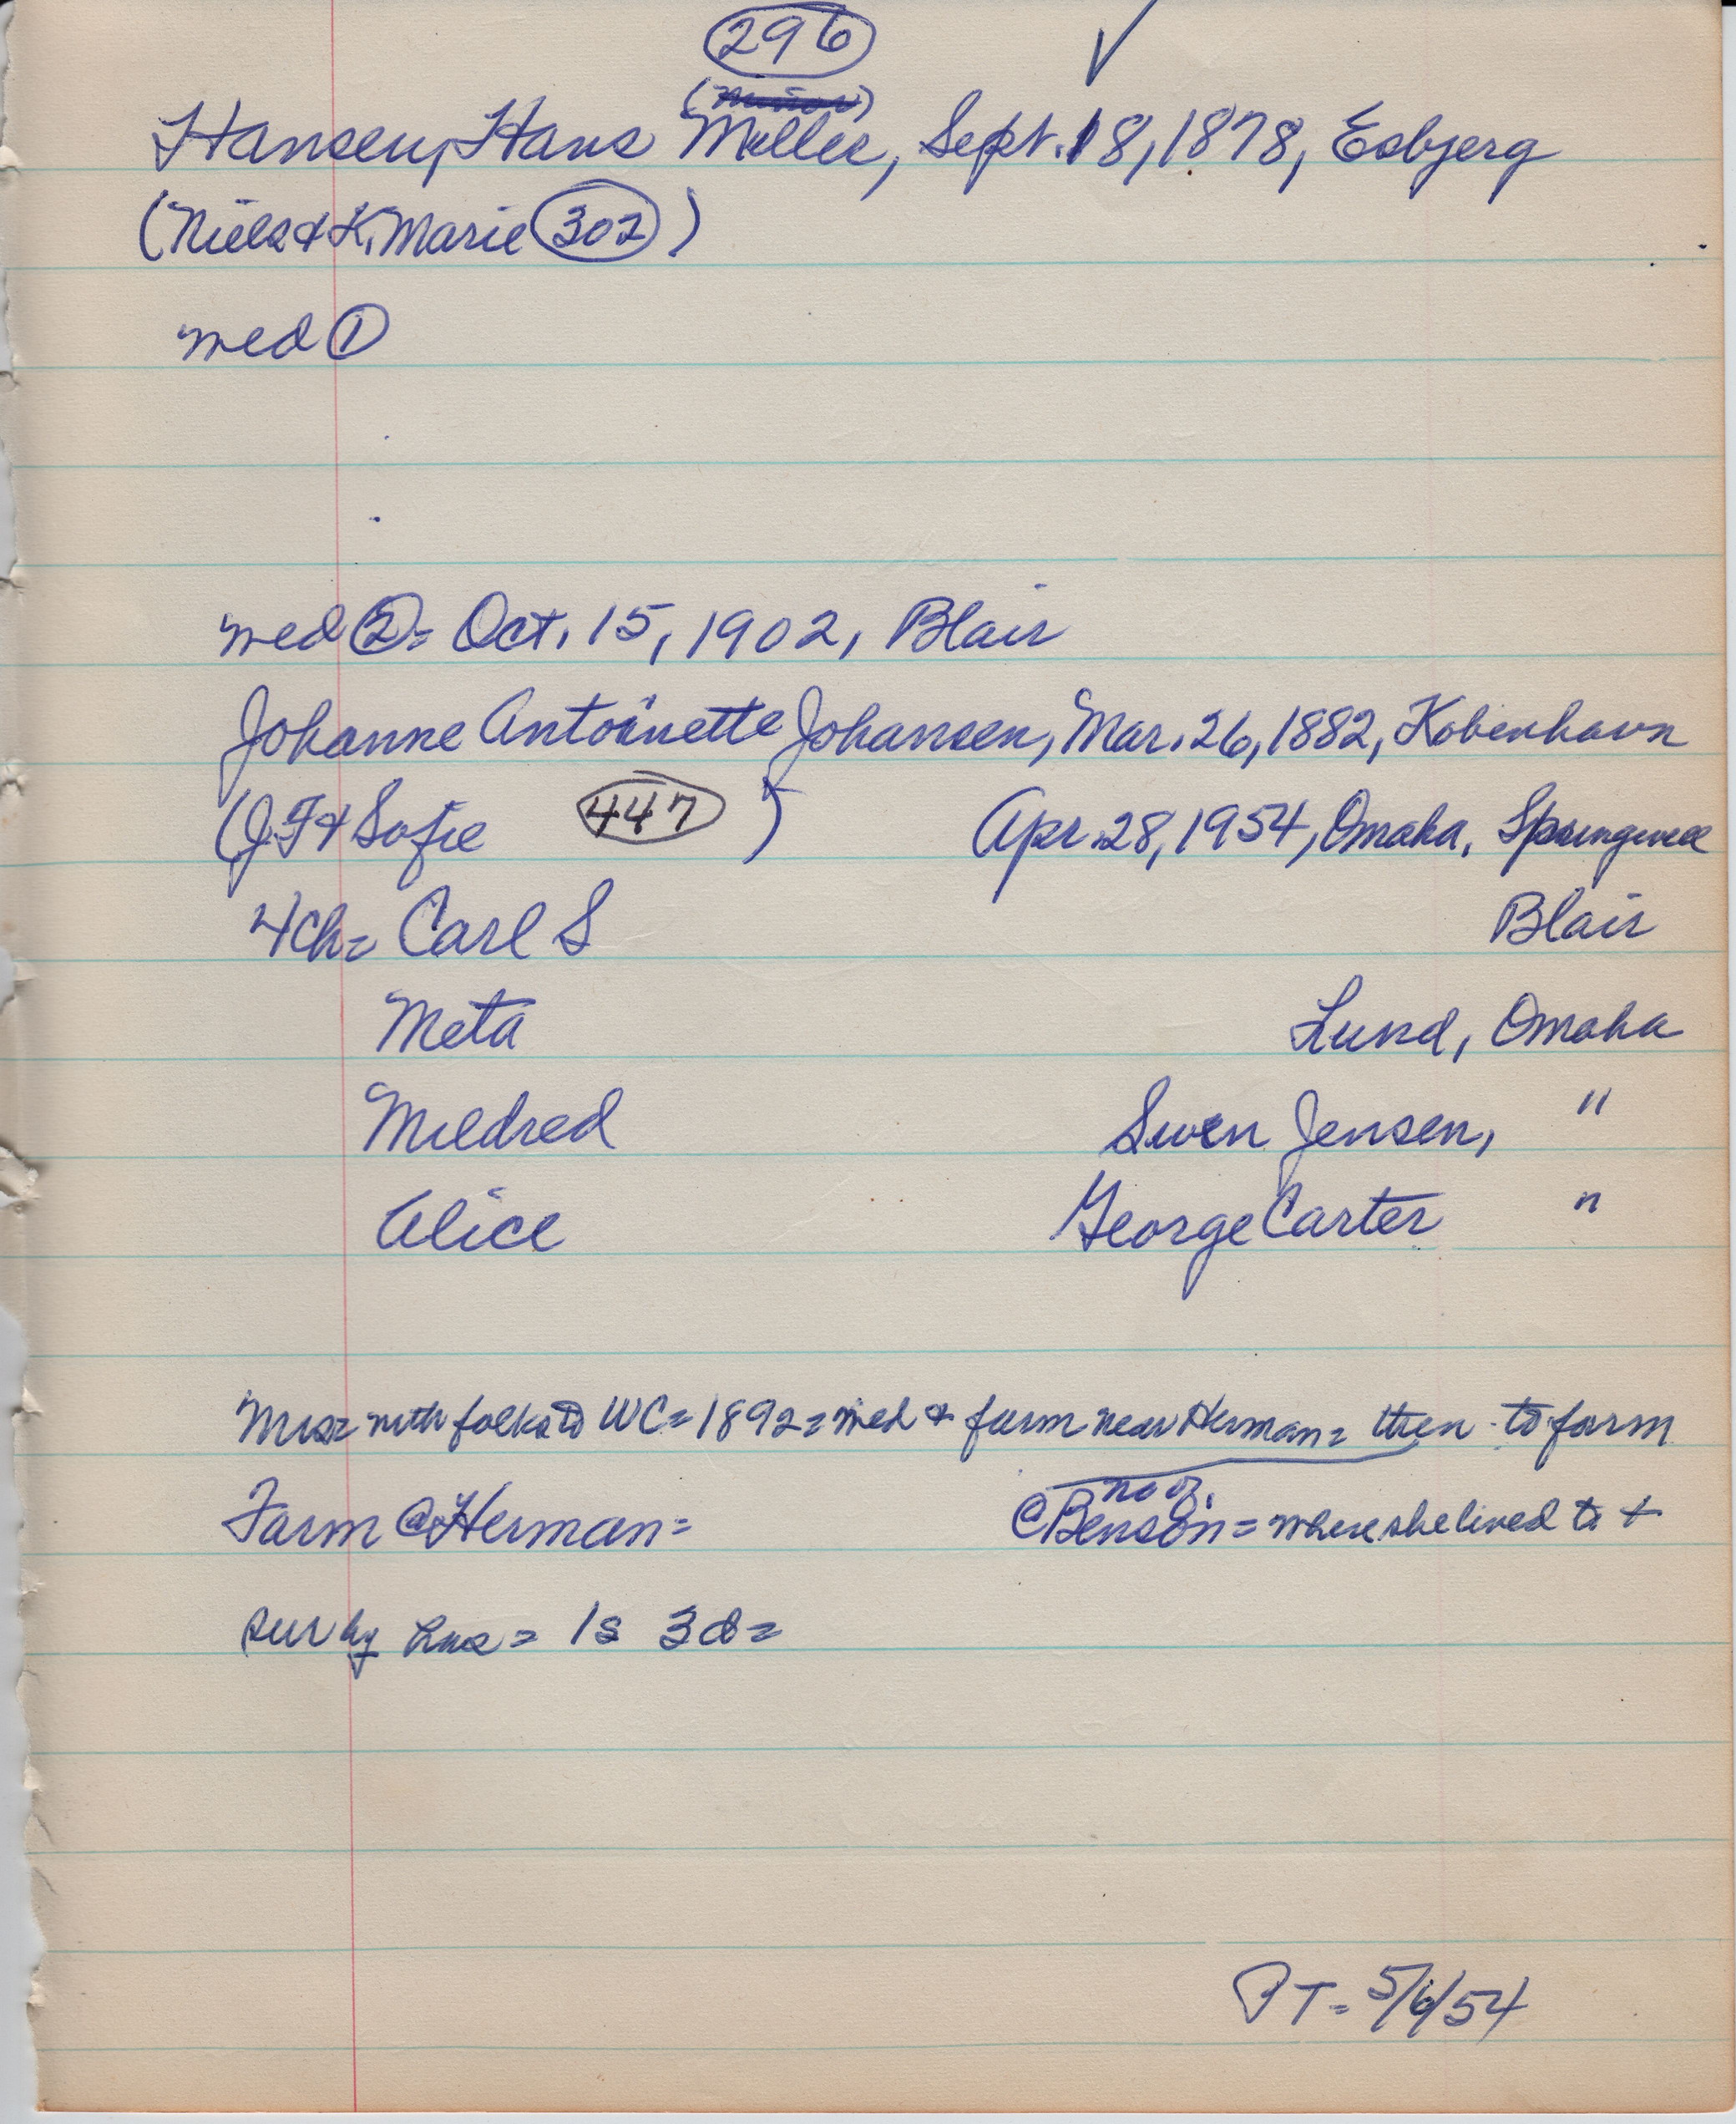 296 ✓
Hansen, Hans Miller, Sept. 18, 1878, Esbjerg
(Niels & K. Marie 302)
med ①
med ②= Oct. 15, 1902, Blair
Johanne Antoinette Johansen, Mar. 26, 1882, Kobenhavn
(J F & Sofie 447) Apr. 28, 1954, Omaha, Springwell
4 ch= Carl S Blair
Meta Lund, Omaha
Mildred Swen Jensen, "
Alice George Carter "
Mrs= with folks to WC= 1892= med & farm near Herman= then to farm
no of.
Farm @ Herman= @ Benson= where she lived to +
sur by hus= 1s 3d=
PT= 5/6/54